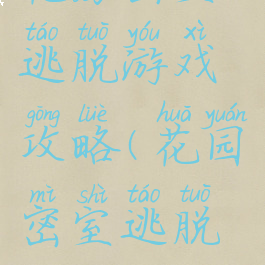 táo tuō yóu xì
逃脱游戏
gōng lüè huā yuán
攻略(花园
mì shì táo tuō
密室逃脱